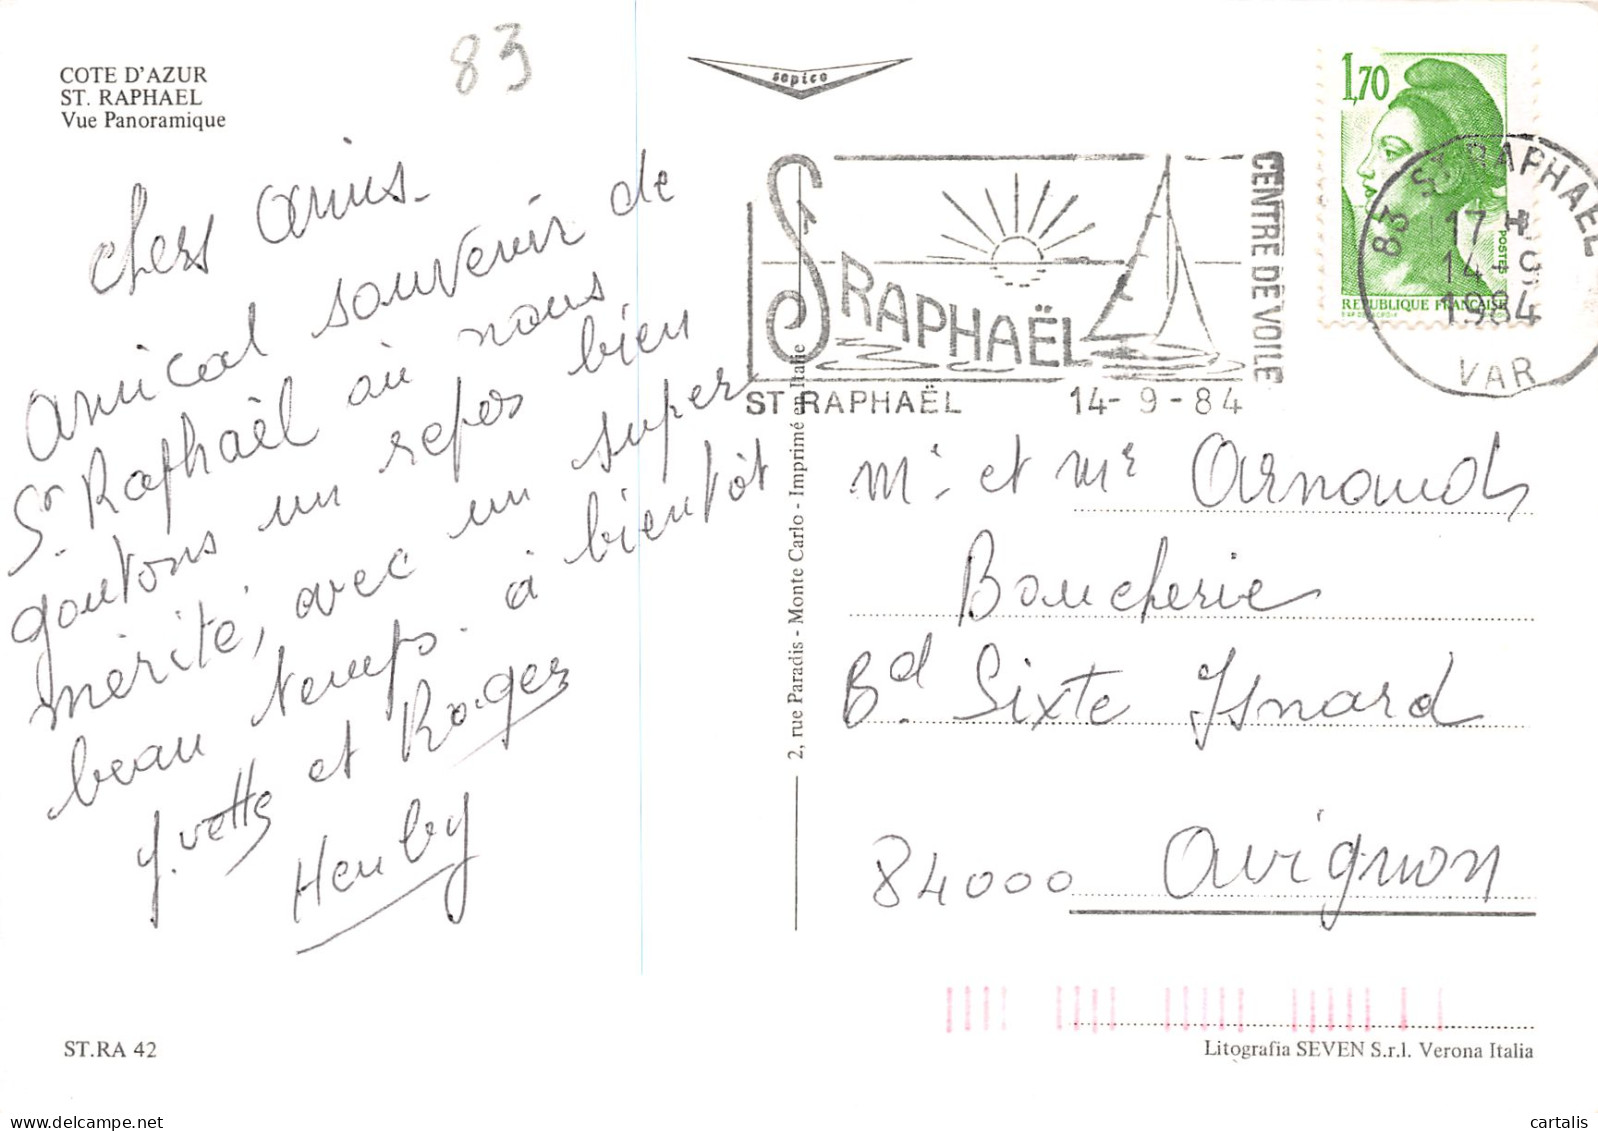 COTE D'AZUR
ST. RAPHAEL
Vue Panoramique
83
Chers Amis.
Amical souvenir de
St Raphaël où nous
goutons un repos bien
mérité, avec un super
beau temps. à bientôt
Y.vette et Roger
sepico
ST RAPHAËL
CENTRE DE VOILE
ST RAPHAËL 14-9-84
1,70
POSTES
REPUBLIQUE FRANÇAISE
83 ST RAPHAEL
17 H
14-9
1984
VAR
2, rue Paradis - Monte Carlo - Imprimé en Italie
Mr. et Mme Arnaud
Boucherie
Bd. Sixte Isnard
84000 Avignon
ST.RA 42
Litografia SEVEN S.r.l. Verona Italia
cartalis